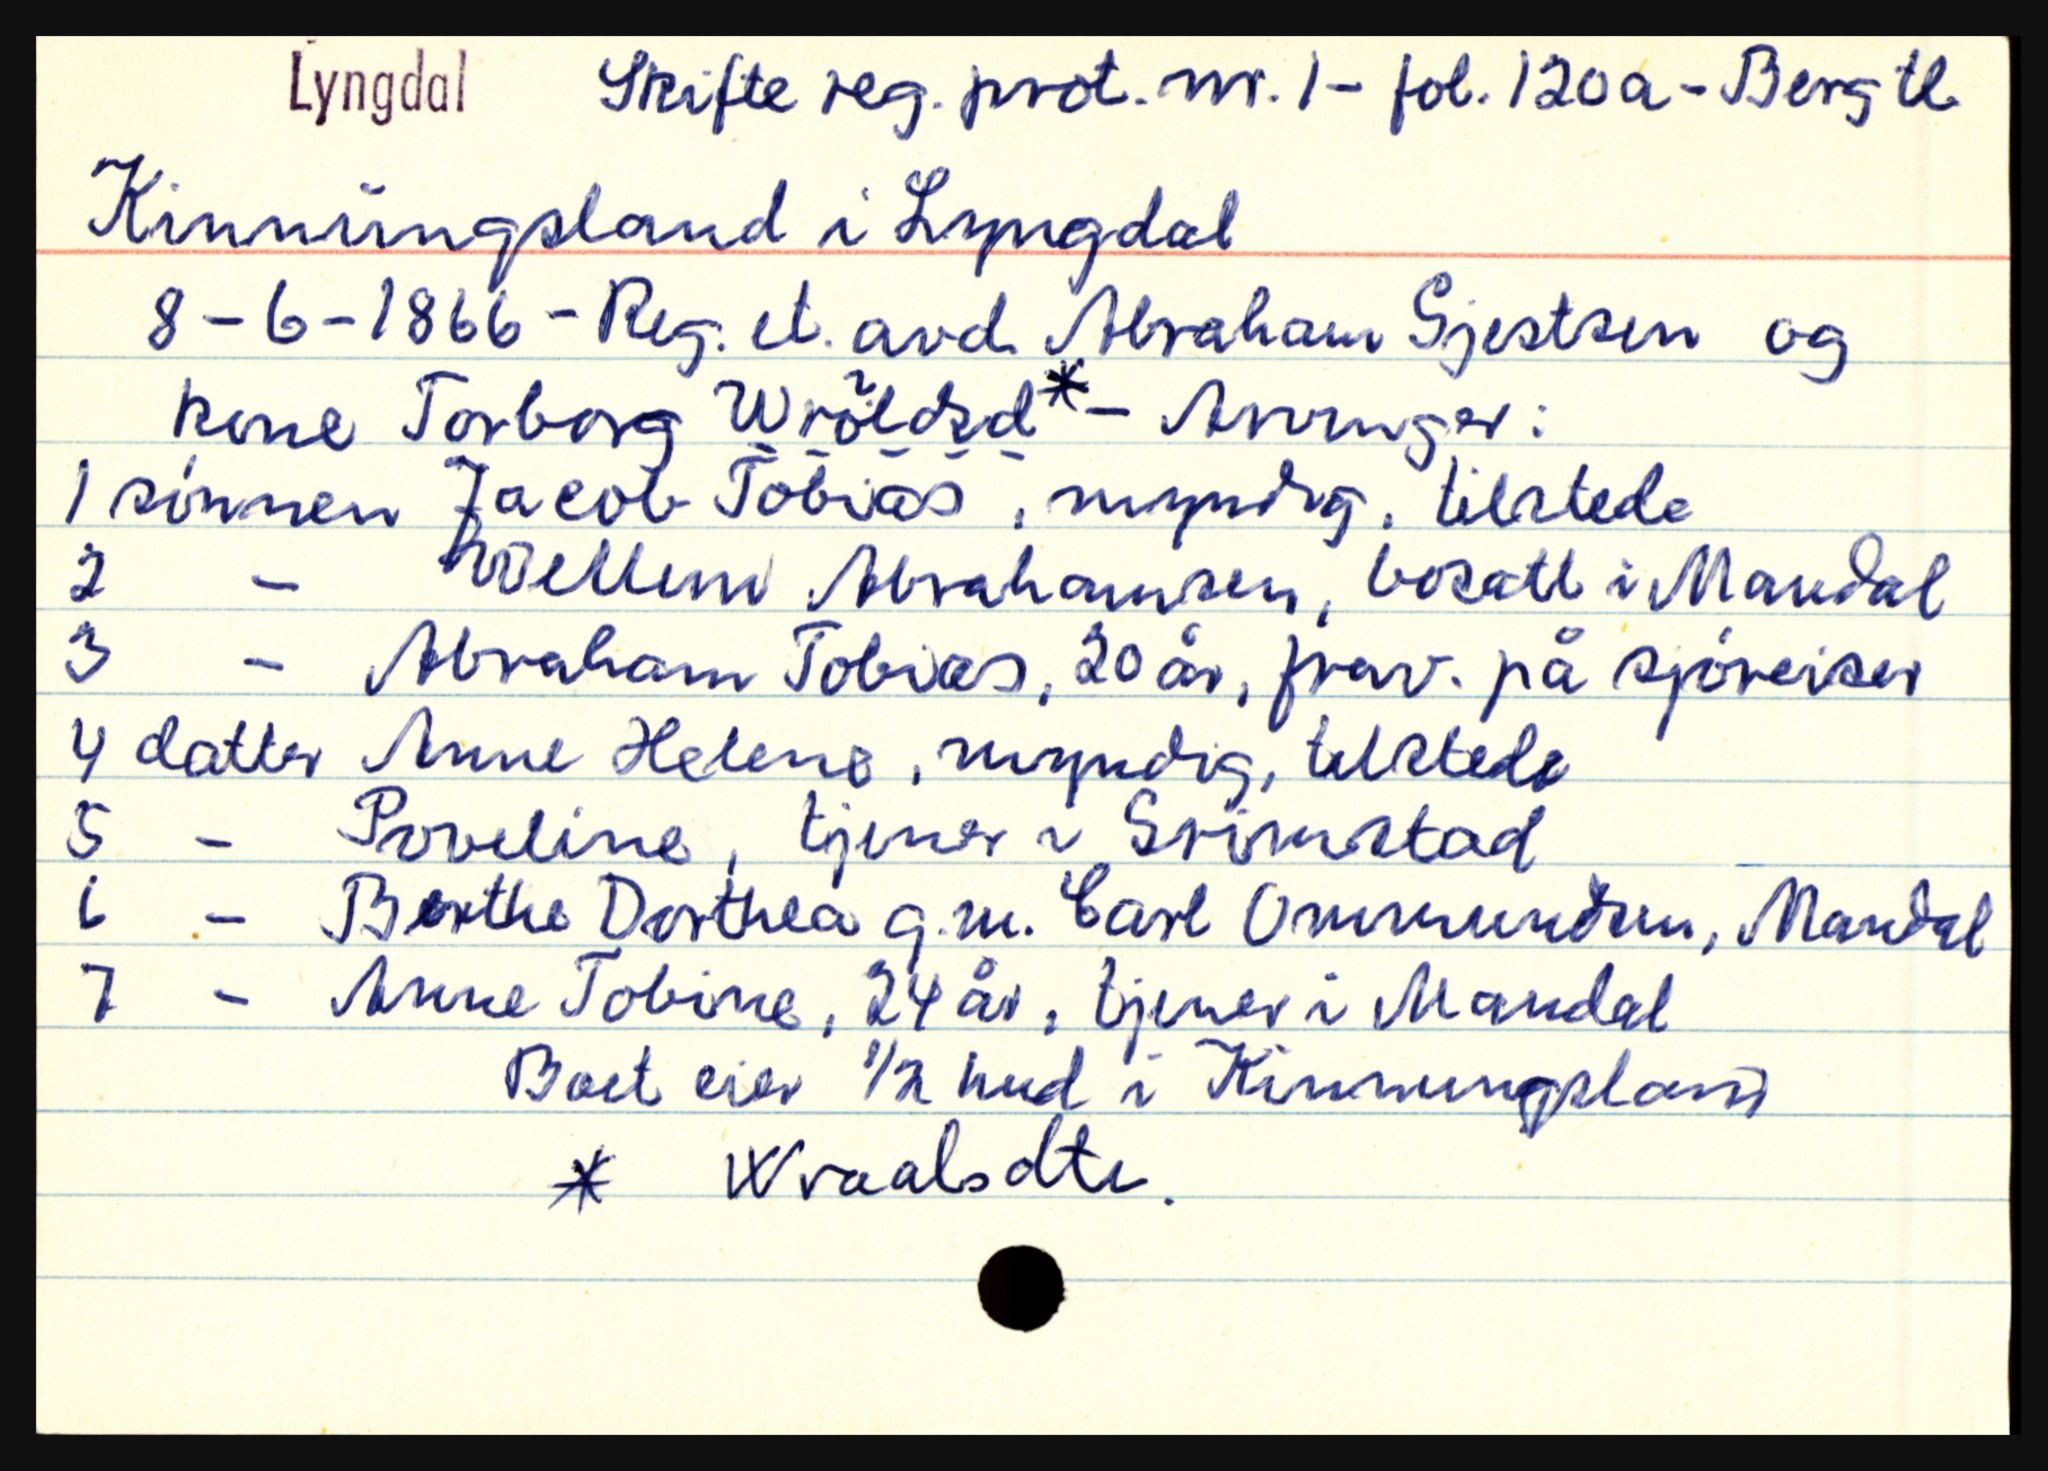 Lyngdal Skifte reg. prot. nr. 1 - fol. 120a - Berg tl
Kinnungsland i Lyngdal
8-6-1866 - Reg. et. avd. Abraham Gjestsen og
kone Torborg Wröldsd* - Arvinger:
1 sönnen Jacob Tobias, myndig, tilstede
2 - Willum Abrahamsen, bosatt i Mandal
3 - Abraham Tobias, 20 år, frav. på sjöreiser
4 datter Anne Helene, myndig, tilstede
5 - Poveline, tjener i Grimstad
6 - Berthe Dorthea g.m. Carl Ommundsen, Mandal
7 - Anne Tobine, 24 år, tjener i Mandal
Boet eier 1/2 hud i Kinnungsland
* Wraalsdtr.